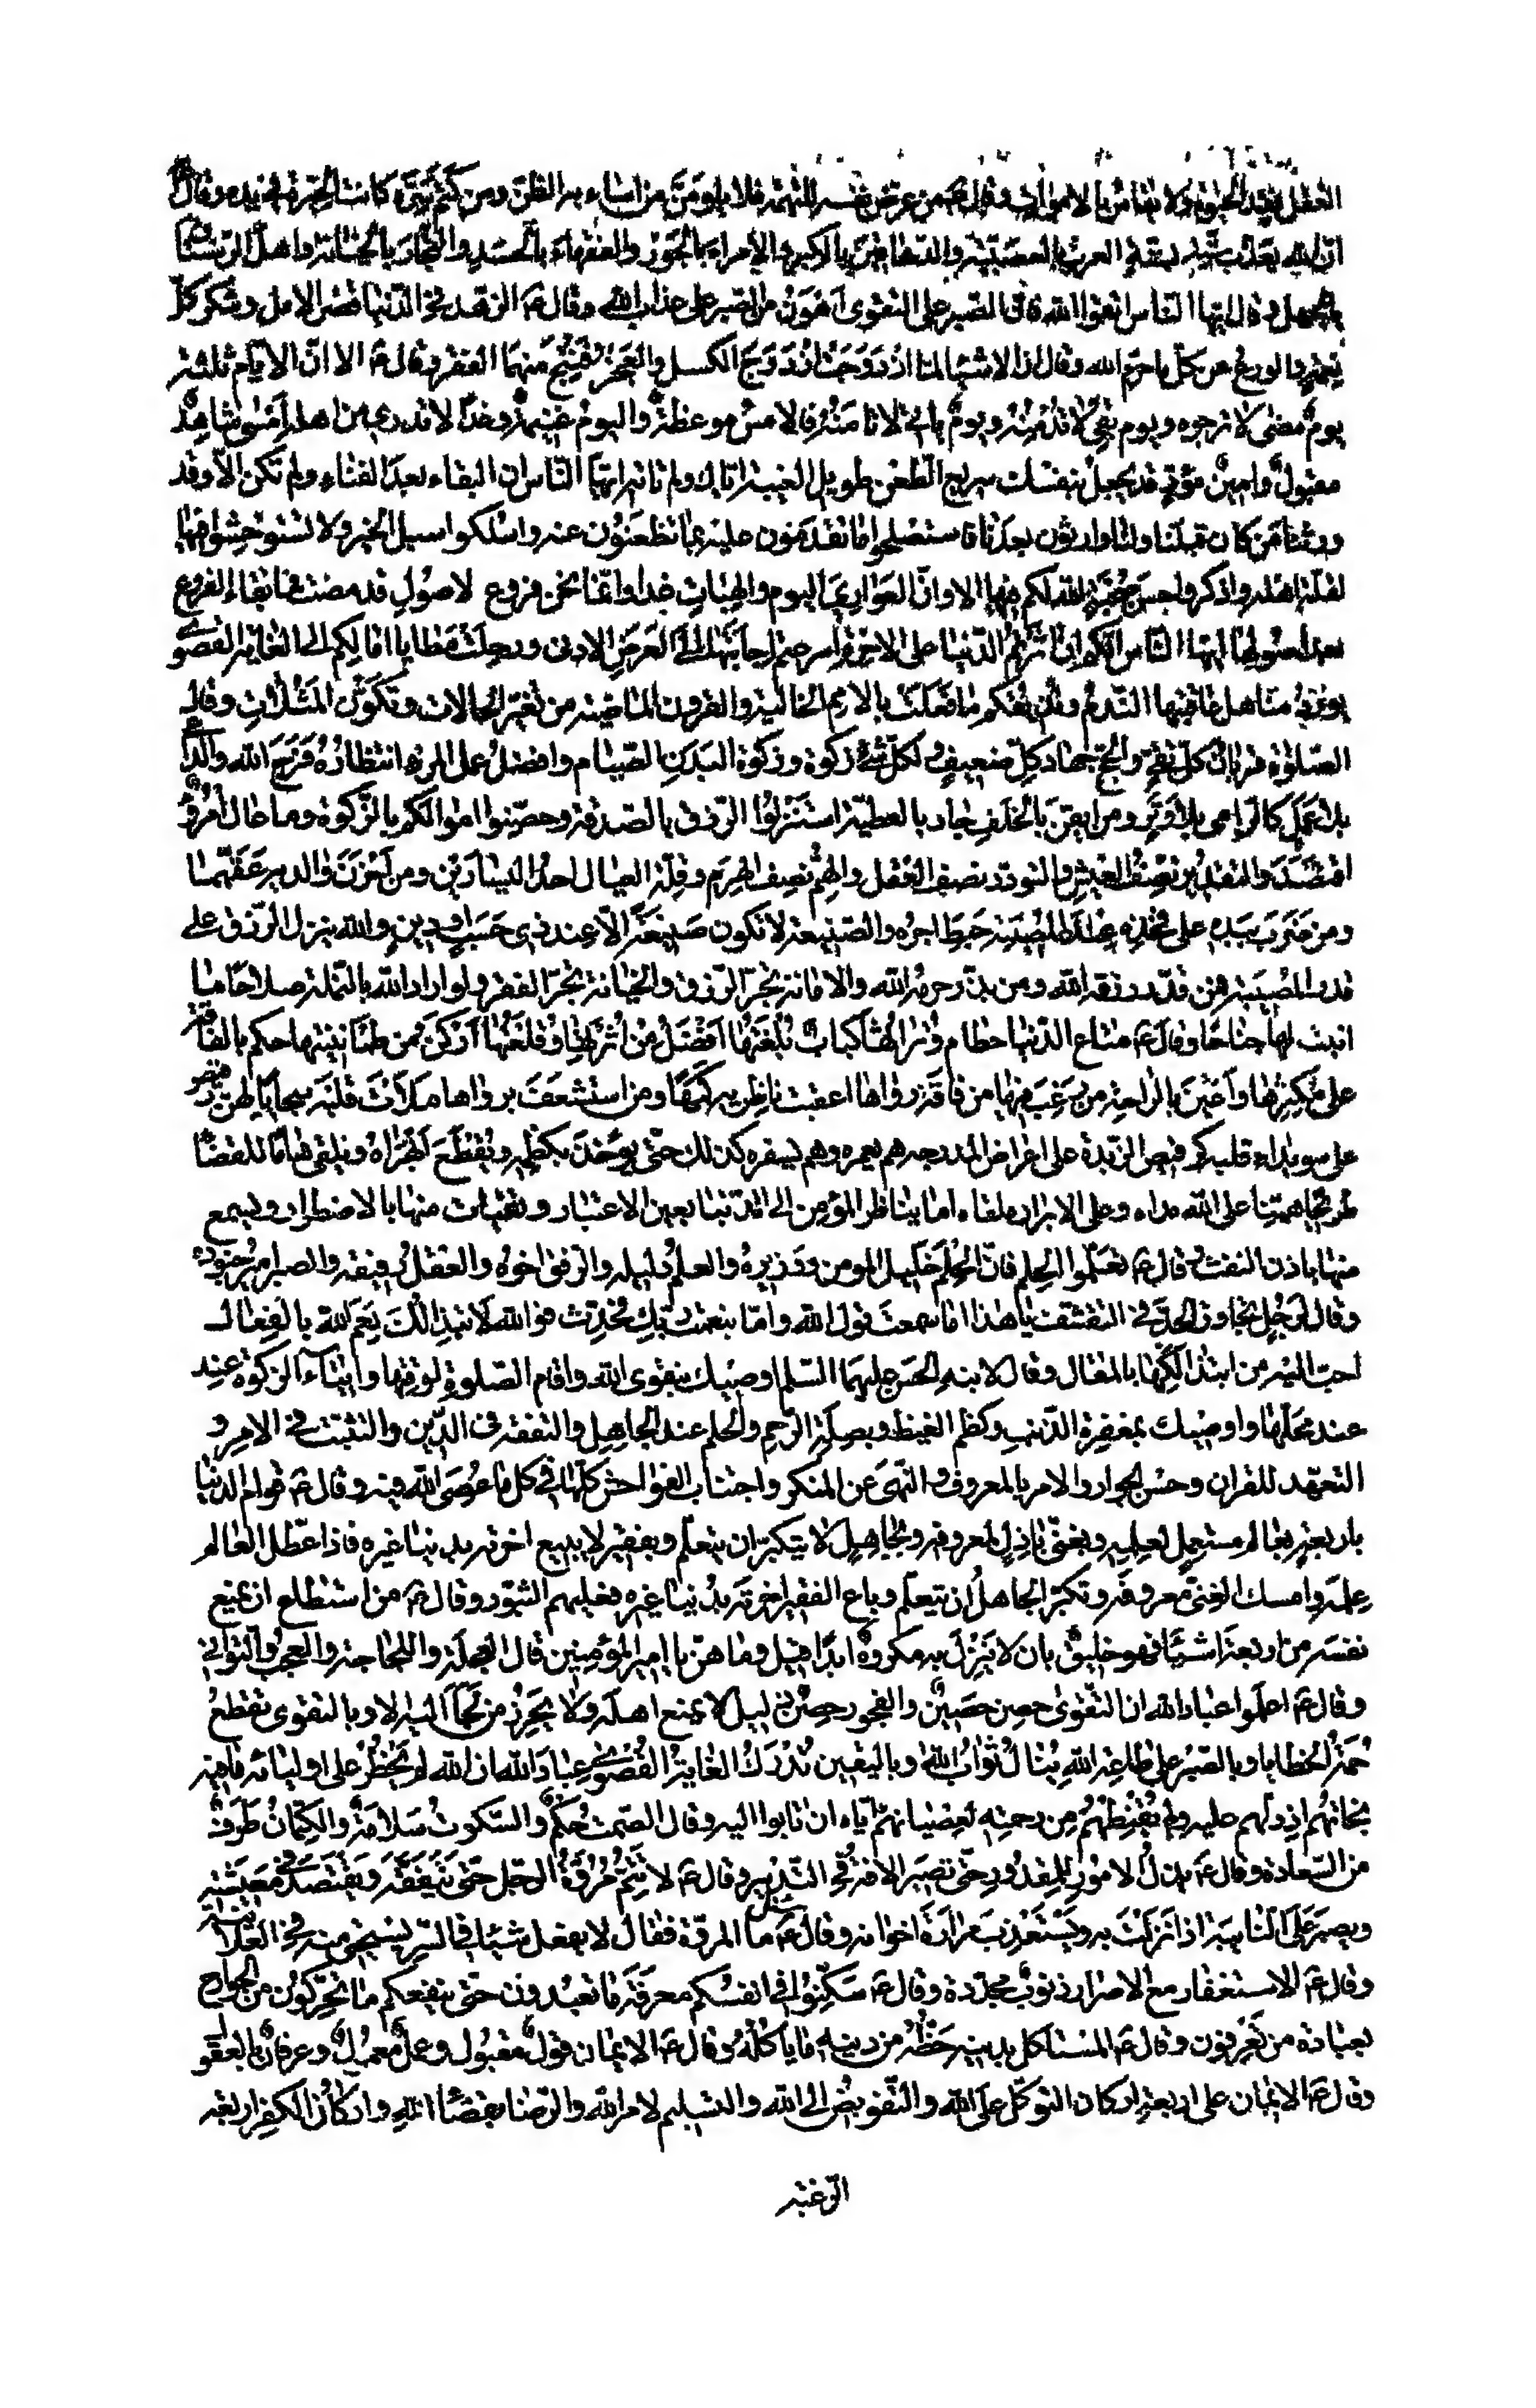 العقل فقد الحيوة ولا يقاس الا بالاموات وقال ع من عرض نفسه للتهمة فلا يلومن من اساء به الظن ومن كتم سره كانت الخيرة في يده وقال
ان الله يعذب ستة بستة العرب بالعصبية والدهاقين بالكبر والامراء بالجور والفقهاء بالحسد والتجار بالخيانة واهل الرستاق
بالجهل وقال ايها الناس اتقوا الله فان الصبر على التقوى اهون من الصبر على عذاب الله وقال ع الزهد في الدنيا قصر الامل وشكر كل
نعمة والورع عن كل ما حرم الله وقال ان الاشياء لما ازدوجت ازدوج الكسل والعجز فنتج منهما الفقر وقال ع الا ان الايام ثلثة
يوم مضى لا ترجوه ويوم بقى لا بد منه ويوم ياتى لا تامنه فالامس موعظة واليوم غنيمة وغدا لا تدرى من اهله امس شاهد
مقبول وامين مؤد قد يعجل بنفسك سريع الظعن طويل الغيبة اتاك ولم تاته ايها الناس ان البقاء بعد الفناء ولم تكن الا وقد
ورثنا من كان قبلنا ولنا وارثون بعدنا فاستصلحوا ما تقدمون عليه بما تظعنون عنه واسلكوا سبل الخير ولا تستوحشوا فيها
لقلة اهله واذكروا حسن صحبة الله لكم فيها الا وان العوارى اليوم والهبات غدا وانما نحن فروع لاصول قد مضت فما بقاء الفروع
بعد اصولها ايها الناس انكم ان اثرتم الدنيا على الاخرة اسرعتم اجابتها الى العرض الادنى ورحلت مطايا امالكم الى الغاية القصوى
يورد مناهل عاقبتها الندم وتذيقكم ما فعلت بالامم الخالية والقرون الماضية من تغير الحالات وتكون المثلات وقال
الصلوة قربان كل تقى والحج جهاد كل ضعيف لكل شئ زكوة وزكوة البدن الصيام وافضل عمل المرء انتظاره فرج الله والداعى
بلا عمل كالرامى بلا وتر ومن ايقن بالخلف جاد بالعطية استنزلوا الرزق بالصدقة وحصنوا اموالكم بالزكوة وما عال امرؤ
اقتصد والتقدير نصف العيش والتودد نصف العقل والهم نصف الهرم وقلة العيال احد اليسارين ومن احزن والديه عقهما
ومن ضرب بيده على فخذه عند المصيبة حبط اجره والصنيعة لا تكون صنيعة الا عند ذى حسب او دين والله ينزل الرزق على
قدر المصيبة فمن قدر رزقه الله ومن بذر حرمه الله والامانة تجر الرزق والخيانة تجر الفقر ولو اراد الله بالنملة صلاحا ما
انبت لها جناحا وقال ع متاع الدنيا حطام وتراثها كباب بلغتها افضل من اثرتها وقلعتها اركن من طمانينتها حكم بالفاقة
على مكثرها واعين بالراحة من رغب عنها من فاقة رواها اعقبت ناظريه كمها ومن استشعف برواها ملأت قلبه اشجانا لهن رقص
على سويداء قلبه كرقيص الزبدة على اعراض المدرجة هم يعمره وهم يسفره كذلك حتى يؤخذ بكظمه ويقطع ابهراه ويلقى هاما للقضا
طريحا هينا على الله مداه وعلى الابرار ملقاه انما ينظر المؤمن الى الدنيا بعين الاعتبار ويقتات منها بالاضطرار ويسمع
منها باذن النفث وقال ع تعلموا الحلم فان الحلم خليل المومن ووزيره والعلم دليله والرفق اخوه والعقل رفيقه والصبر امير جنوده
وقال لرجل تجاوز الحد في التقشف يا هذا اما سمعت قول الله واما بنعمة ربك فحدث فوالله لابتذالك نعم الله بالفعال
احب اليه من ابتذالكها بالمقال وقال لابنه الحسن عليهما السلم اوصيك بتقوى الله واقام الصلوة لوقتها وايتاء الزكوة عند
عند محلها واوصيك بمغفرة الذنب وكظم الغيظ وبصلة الرحم والحلم عند الجاهل والتفقه فى الدين والتثبت في الامر و
التعهد للقران وحسن الجوار والامر بالمعروف والنهى عن المنكر واجتناب الفواحش كلها في كل ما عصى الله فيه وقال ع قوام الدنيا
باربعة بعالم مستعمل لعلمه وبغنى باذل لمعروفه وبجاهل لا يتكبر ان يتعلم وبفقير لا يبيع اخرته بدنيا غيره فاذا عطل العالم
علمه وامسك الغنى معروفه وتكبر الجاهل ان يتعلم وباع الفقير اخرته بدنيا غيره فعليهم الثبور وقال ع من استطاع ان يمنع
نفسه من اربعة اشياء فهو خليق بان لا ينزل به مكروه ابدا قيل وما هن يا امير المؤمنين قال العجلة واللجاجة والعجب والتوانى
وقال ع اعلموا عباد الله ان التقوى حصن حصين والفجور حصن ذليل لا يمنع اهله ولا يحرز من لجأ اليه الا وبالتقوى تقطع
حمة الخطايا وبالصبر على طاعة الله ينال ثواب الله وباليقين تدرك الغاية القصوى عباد الله ان الله لم يحظر على اوليائه ما فيه
نجاتهم اذ دلهم عليه ولم يقنطهم من رحمته لعصيانهم اياه ان تابوا اليه وقال الصمت حكم والسكوت سلامة والكتمان طرف
من السعادة وقال ع تذل الامور للمقدور حتى تصير الافة في التدبير وقال ع لا تتم مروة الرجل حتى يتفقه ويقتصد في معيشته
ويصبر على النايبة اذا نزلت به ويستعذب مرارة اخوانه وقال ع وسئل ما المروة فقال لا تفعل شيئا في السر تستحيى منه في العلانية
وقال ع الاستغفار مع الاصرار ذنوب مجددة وقال ع سكنوا في انفسكم معرفة ما تعبدون حتى ينفعكم ما تحركون من الجوارح
بعبادة من تعرفون وقال ع المستاكل بدينه حظه من دينه ما ياكله وقال ع الايمان قول مقبول وعمل معمول وعرفان بالعقول
وقال ع الايمان على اربعة اركان التوكل على الله والتفويض الى الله والتسليم لامر الله والرضا بقضاء الله واركان الكفر اربعة
الرغبة